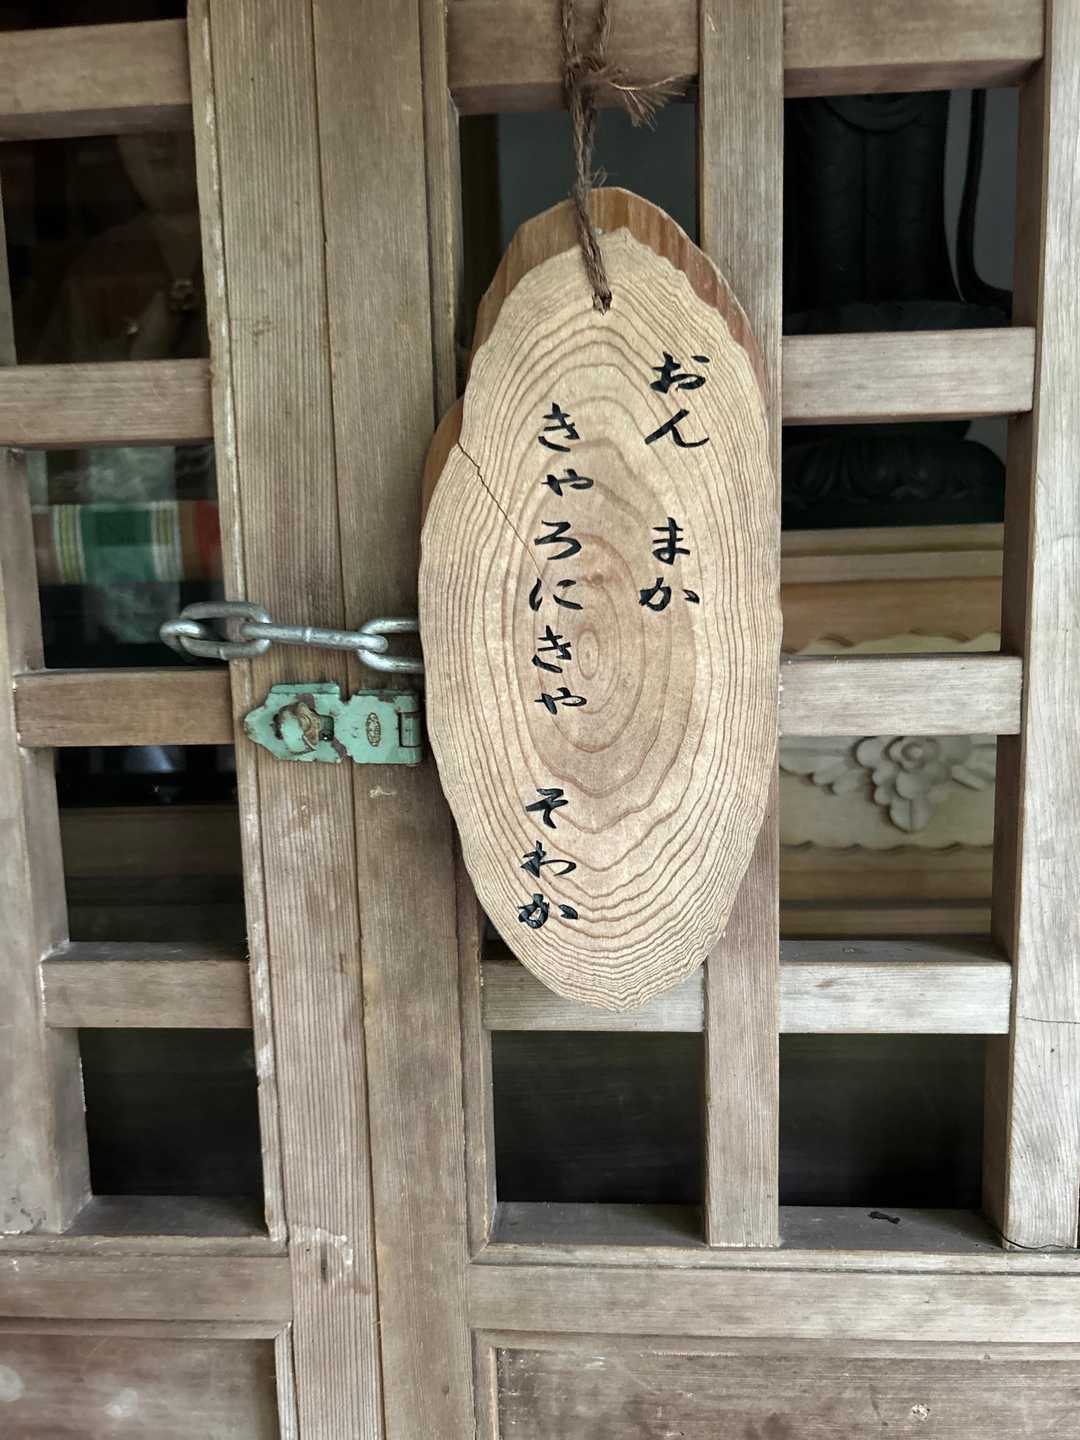 おん まか
きゃろにきゃ そわか